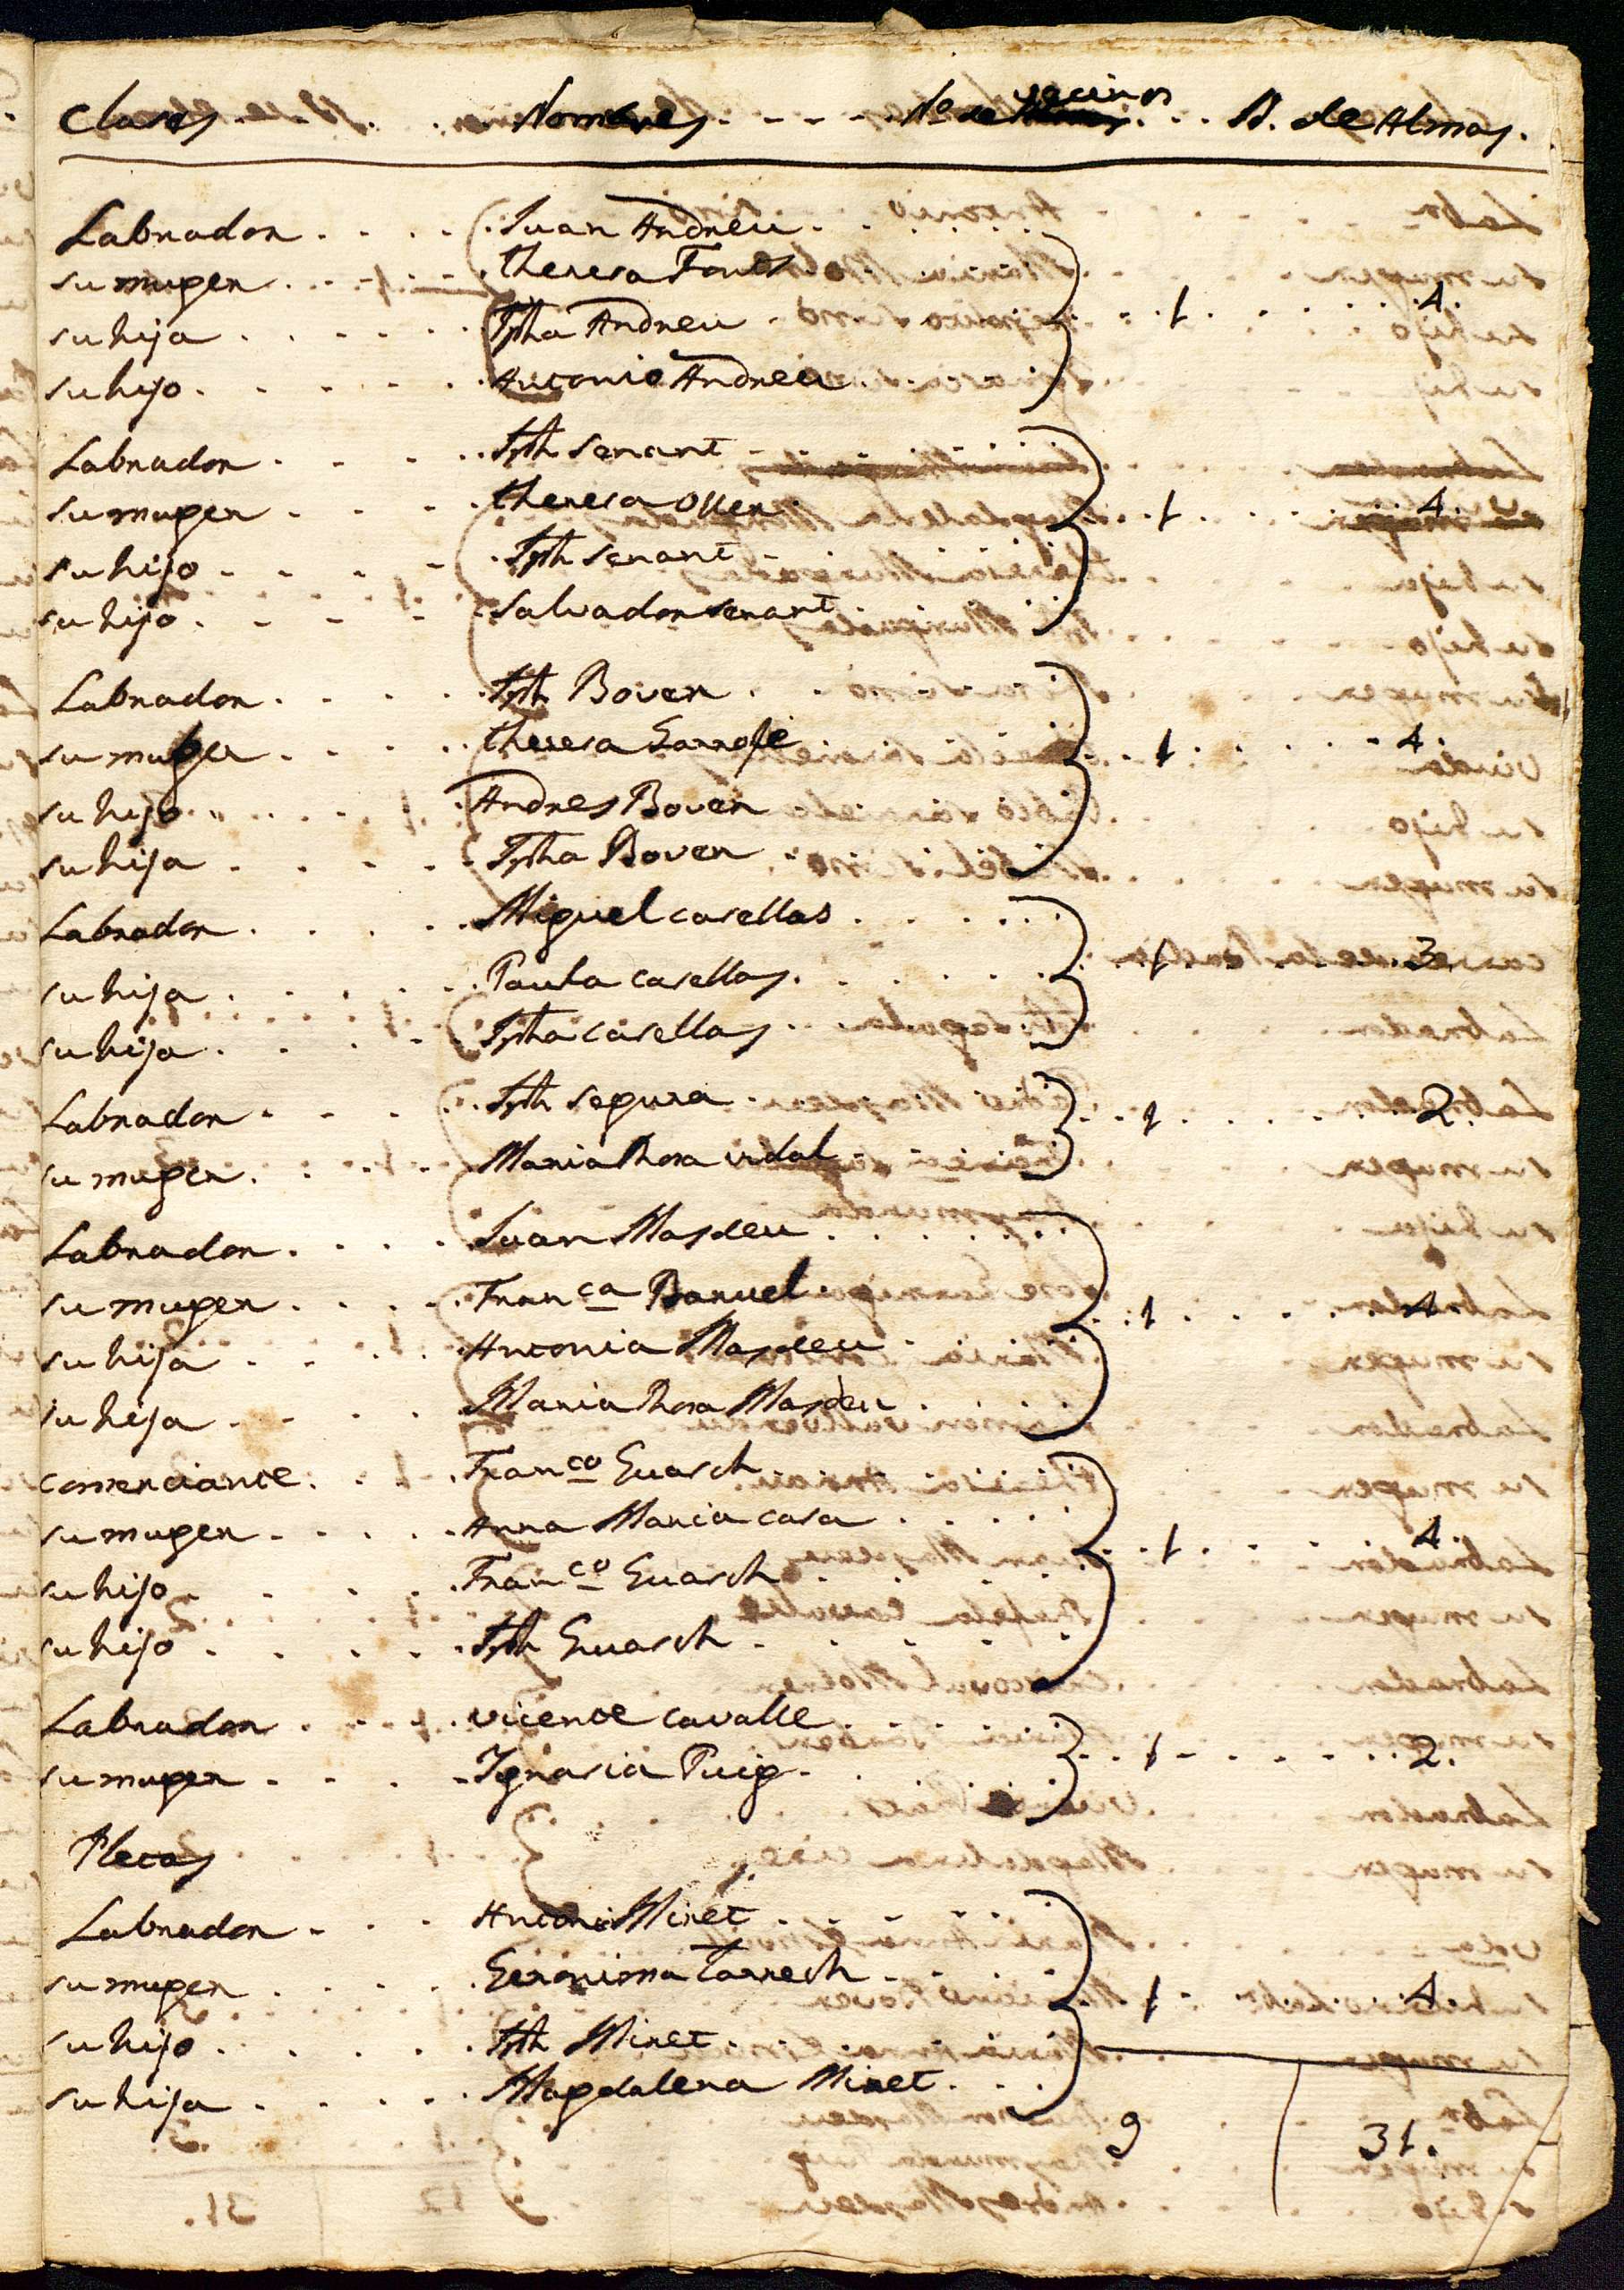 Clases Nombres N.o de vecinos N. de Almas.
Labrador Juan Andreu
su muger Theresa Fonts
su hija Jpha Andreu 1 4.
su hijo Antonio Andreu
Labrador Jph Senant
su muger Theresa Oller 1 4.
su hijo Jph Senant
su hijo Salvador Senant
Labrador Jph Bover
su muger Theresa Garrofé 1 4.
su hijo Andres Bover
su hija Jpha Bover
Labrador Miguel casellas
su hija Paula casellas 1 3.
su hija Jpha casellas
Labrador Jph segura 1 2.
su muger Maria Rosa vidal
Labrador Juan Masdeu
su muger Fran.ca Banuel 1 4.
su hija Antonia Masdeu
su hija Maria Rosa Masdeu
comerciante Fran.co Guasch
su muger Anna Maria casa 1 4.
su hijo Fran.co Guasch
su hijo Jph Guasch
Labrador vicente cavalle
su muger Ignasia Puig 1 2.
Plecas
Labrador Antoni Miret
su muger Geronima Tarrech 1 4
su hijo Jph Miret
su hija Magdalena Miret
9 31.